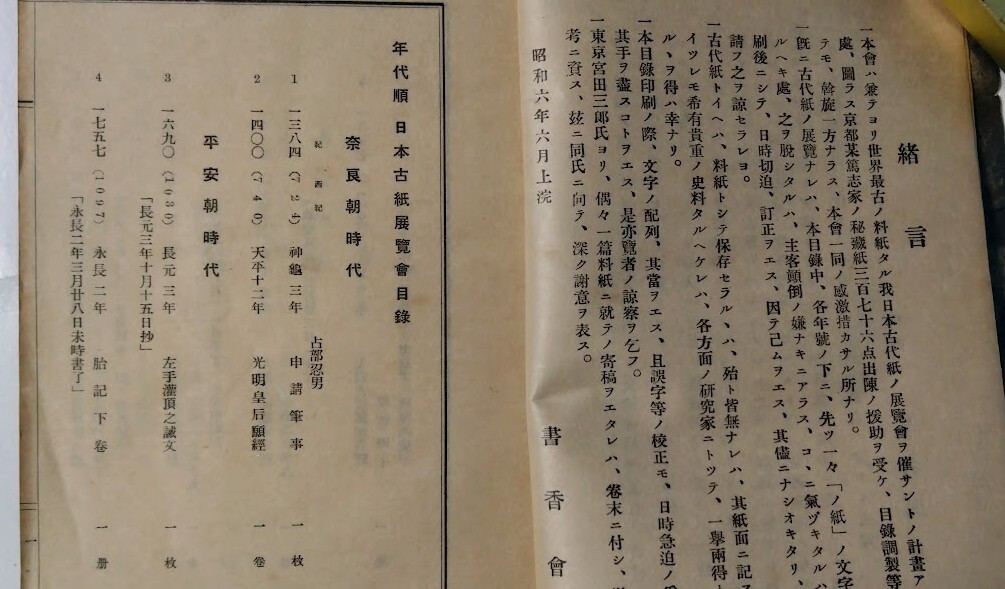 緒言
一本會ハ兼テヨリ世界最古ノ料紙タル我日本古代紙ノ展覽會ヲ催サントノ計畫ア
處、圖ラス京都某篤志家ノ秘藏紙三百七十六点出陳ノ援助ヲ受ケ、目錄調製等
テモ、斡旋一方ナラス、本會一同ノ感激措カサル所ナリ。
一旣ニ古代紙ノ展覽ナレハ、本目錄中、各年號ノ下ニ、先ツ一々「ノ紙」ノ文字
ルヘキ處、之ヲ脫シタルハ、主客顚倒ノ嫌ナキニアラス、コヽニ氣ヅキタルハ
刷後ニシテ、日時切迫、訂正ヲエス、因テ己ムヲエス、其儘ニナシオキタリ、
請フ之ヲ諒セラレヨ。
一古代紙トイヘハ、料紙トシテ保存セラルヽハ、殆ト皆無ナレハ、其紙面ニ記ス
イツレモ希有貴重ノ史料タルヘケレハ、各方面ノ研究家ニトツテ、一擧兩得
ルヽヲ得ハ幸ナリ。
一本目錄印刷ノ際、文字ノ配列、其當ヲエス、且誤字等ノ校正モ、日時急迫ノ
其手ヲ盡スコトヲエス、是亦覽者ノ諒察ヲ乞フ。
一東京宮田三郞氏ヨリ、偶々一篇料紙ニ就テノ寄稿ヲエタレハ、卷末ニ付シ、
考ニ資ス、玆ニ同氏ニ向テ、深ク謝意ヲ表ス。
昭和六年六月上浣
書香會
年代順 日本古紙展覽會目錄
奈良朝時代
紀 西紀
1 一三八四(724) 神龜三年 申請筆事 占部忍男 一枚
2 一四〇〇(740) 天平十二年 光明皇后願經 一卷
平安朝時代
3 一六九〇(1030) 長元三年 左手灌頂之誡文 一枚
「長元三年十月十五日抄」
4 一七五七(1097) 永長二年 胎記下卷 一册
「永長二年三月廿八日未時書了」
一